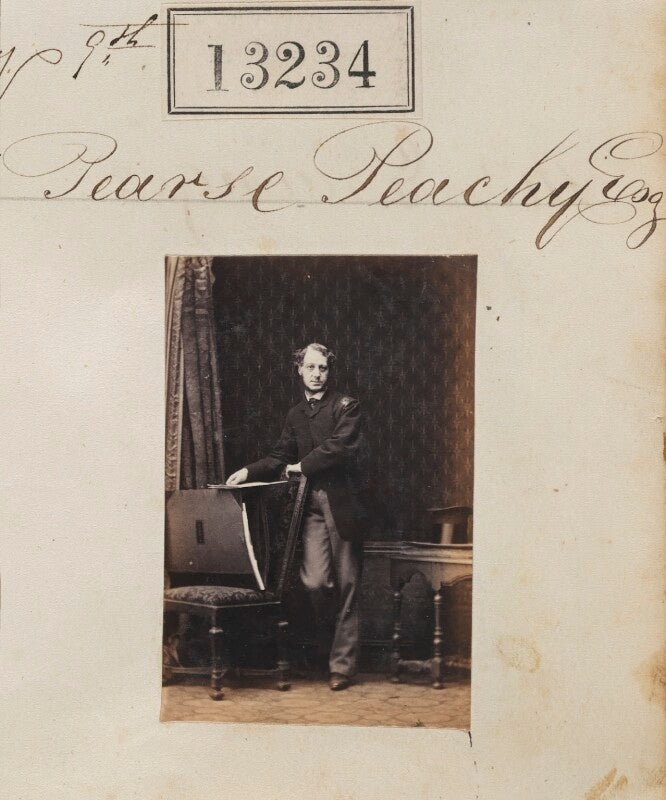 9th
13234
Pearse Peachy Esq